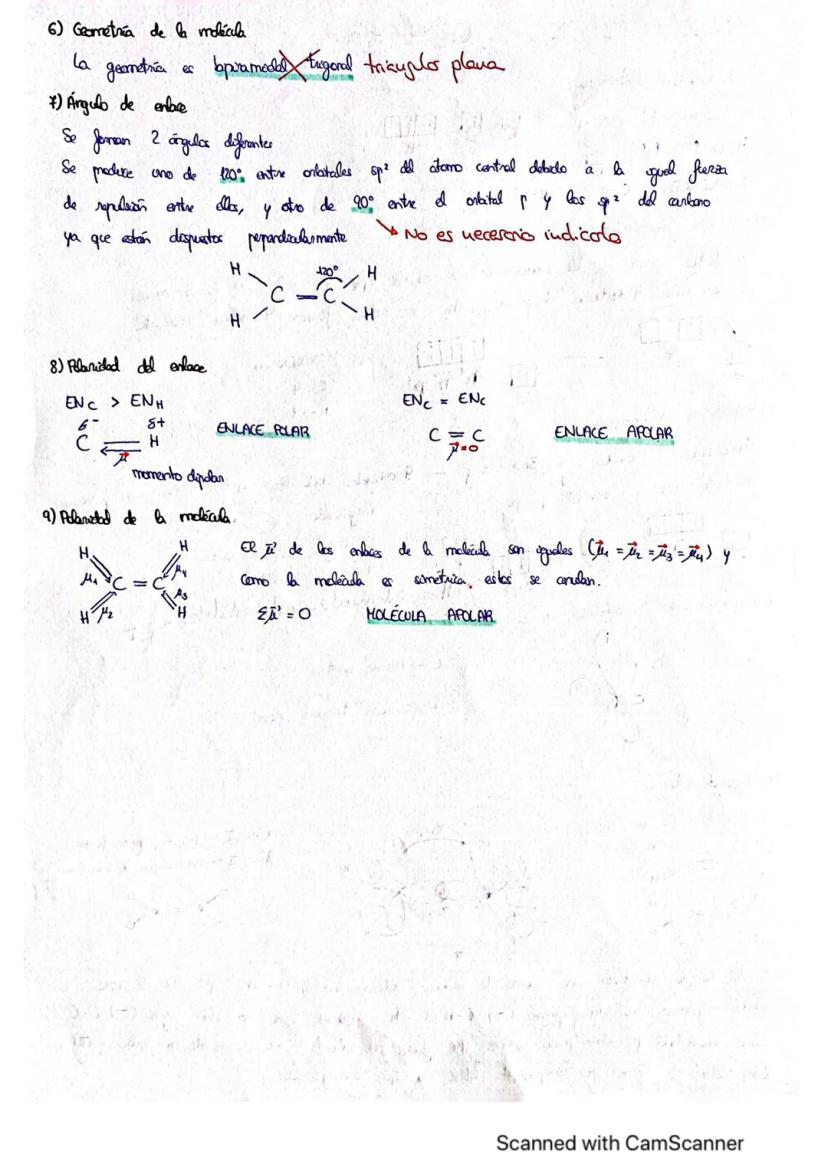 6) Geometría de la molécula
La geometría es bipiramidal trigonal triangular plana
7) Ángulo de enlace
Se forman 2 ángulos diferentes
Se produce uno de 120° entre orbitales sp² del átomo central debido a la igual fuerza
de repulsión entre ellos, y otro de 90° entre el orbital p y los sp² del carbono
ya que están dispuestos perpendicularmente
No es necesario indicarlo
H 120° H
C = C
H H
8) Polaridad del enlace
ENC > ENH ENC = ENC
δ- δ+
C H ENLACE POLAR C = C ENLACE APOLAR
μ⃗ μ⃗=0
momento dipolar
9) Polaridad de la molécula.
H H El μ⃗ de los enlaces de la molécula son iguales (μ⃗1 = μ⃗2 = μ⃗3 = μ⃗4) y
μ1 C = C μ4 como la molécula es simétrica, estos se anulan.
μ3
H μ2 H Σμ⃗ = 0 MOLÉCULA APOLAR
Scanned with CamScanner